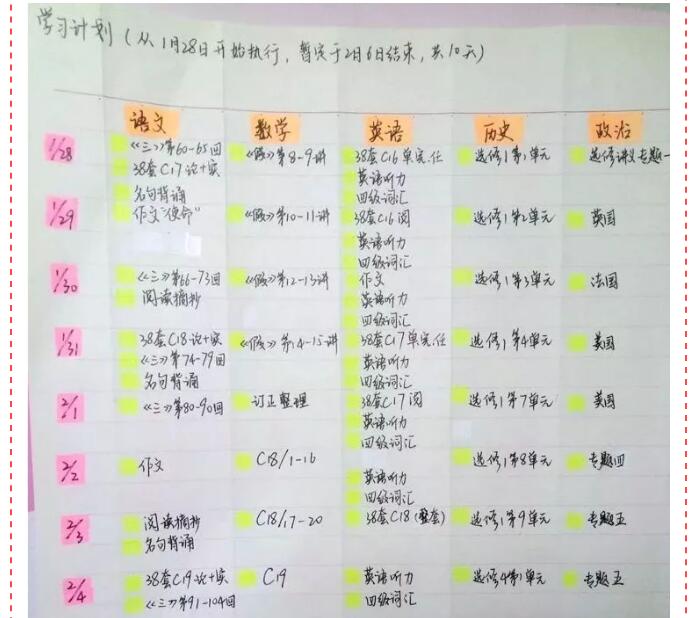 学习计划（从1月28日开始执行，暂定于2月6日结束，共10天）
语文 数学 英语 历史 政治
1/28 《三》第60-65回 《假》第8-9讲 38套C16单完.任 选修1第1单元 选修讲义专题一
38套C17论+实 英语听力
名句背诵 四级词汇
1/29 作文"使命" 《假》第10-11讲 38套C16阅 选修1第2单元 英国
英语听力
四级词汇
1/30 《三》第66-73回 《假》第12-13讲 作文 选修1第3单元 法国
阅读摘抄 英语听力
四级词汇
1/31 38套C18论+实 《假》第14-15讲 38套C17单完.任 选修1第4单元 美国
《三》第74-79回 英语听力
名句背诵 四级词汇
2/1 《三》第80-90回 订正整理 38套C17阅 选修1第7单元 美国
英语听力
四级词汇
2/2 作文 C18/1-16 英语听力 选修1第8单元 专题四
四级词汇
2/3 阅读摘抄 C18/17-20 38套C18(整套) 选修1第9单元 专题五
名句背诵
2/4 38套C19论+实 C19 英语听力 选修4第1单元 专题五
《三》第91-104回 四级词汇